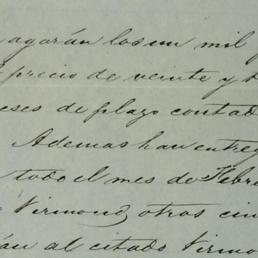 agarán los un mil
precio de veinte y
eses de plazo contad
Ademas han entreg
todo el mes de Febre
Virmond, otros cin
án al citado Virmo